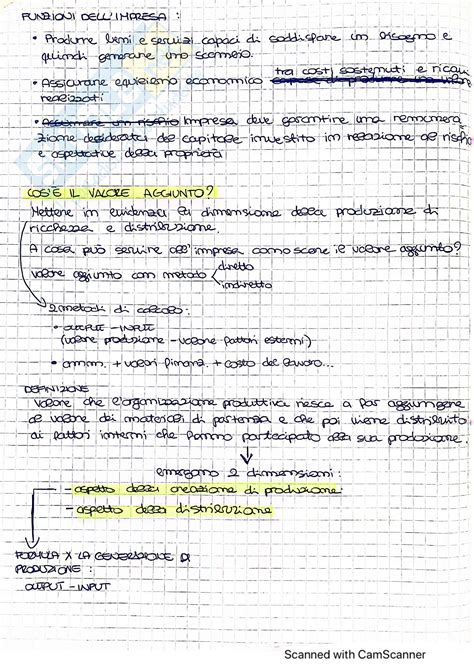 FUNZIONI DELL'IMPRESA :
• Produrre beni e servizi capaci di soddisfare un bisogno e
quindi generare uno scambio.
• Assicurare equilibrio economico tra costi sostenuti e ricavi
realizzati
• Assumere un rischio Impresa deve garantire una remunera
zione desiderata del capitale investito in relazione al rischio
e aspettative della proprietà
COS'È IL VALORE AGGIUNTO?
Mettere in evidenza la dimensione della produzione di
ricchezza e distribuzione.
A cosa può servire all'impresa conoscere il valore aggiunto?
valore aggiunto con metodo diretto
indiretto
2 metodi di calcolo:
• OUTPUT - INPUT
(valore produzione - valore fattori esterni)
• amm. + valori finanz. + costo del lavoro...
DEFINIZIONE
Valore che l'organizzazione produttiva riesce a far aggiungere
al valore dei materiali di partenza e che poi viene distribuito
ai fattori interni che hanno partecipato alla sua produzione.
emergono 2 dimensioni:
- aspetto della creazione di produzione
- aspetto della distribuzione
FORMULA X LA GENERAZIONE DI
PRODUZIONE :
OUTPUT - INPUT
Scanned with CamScanner